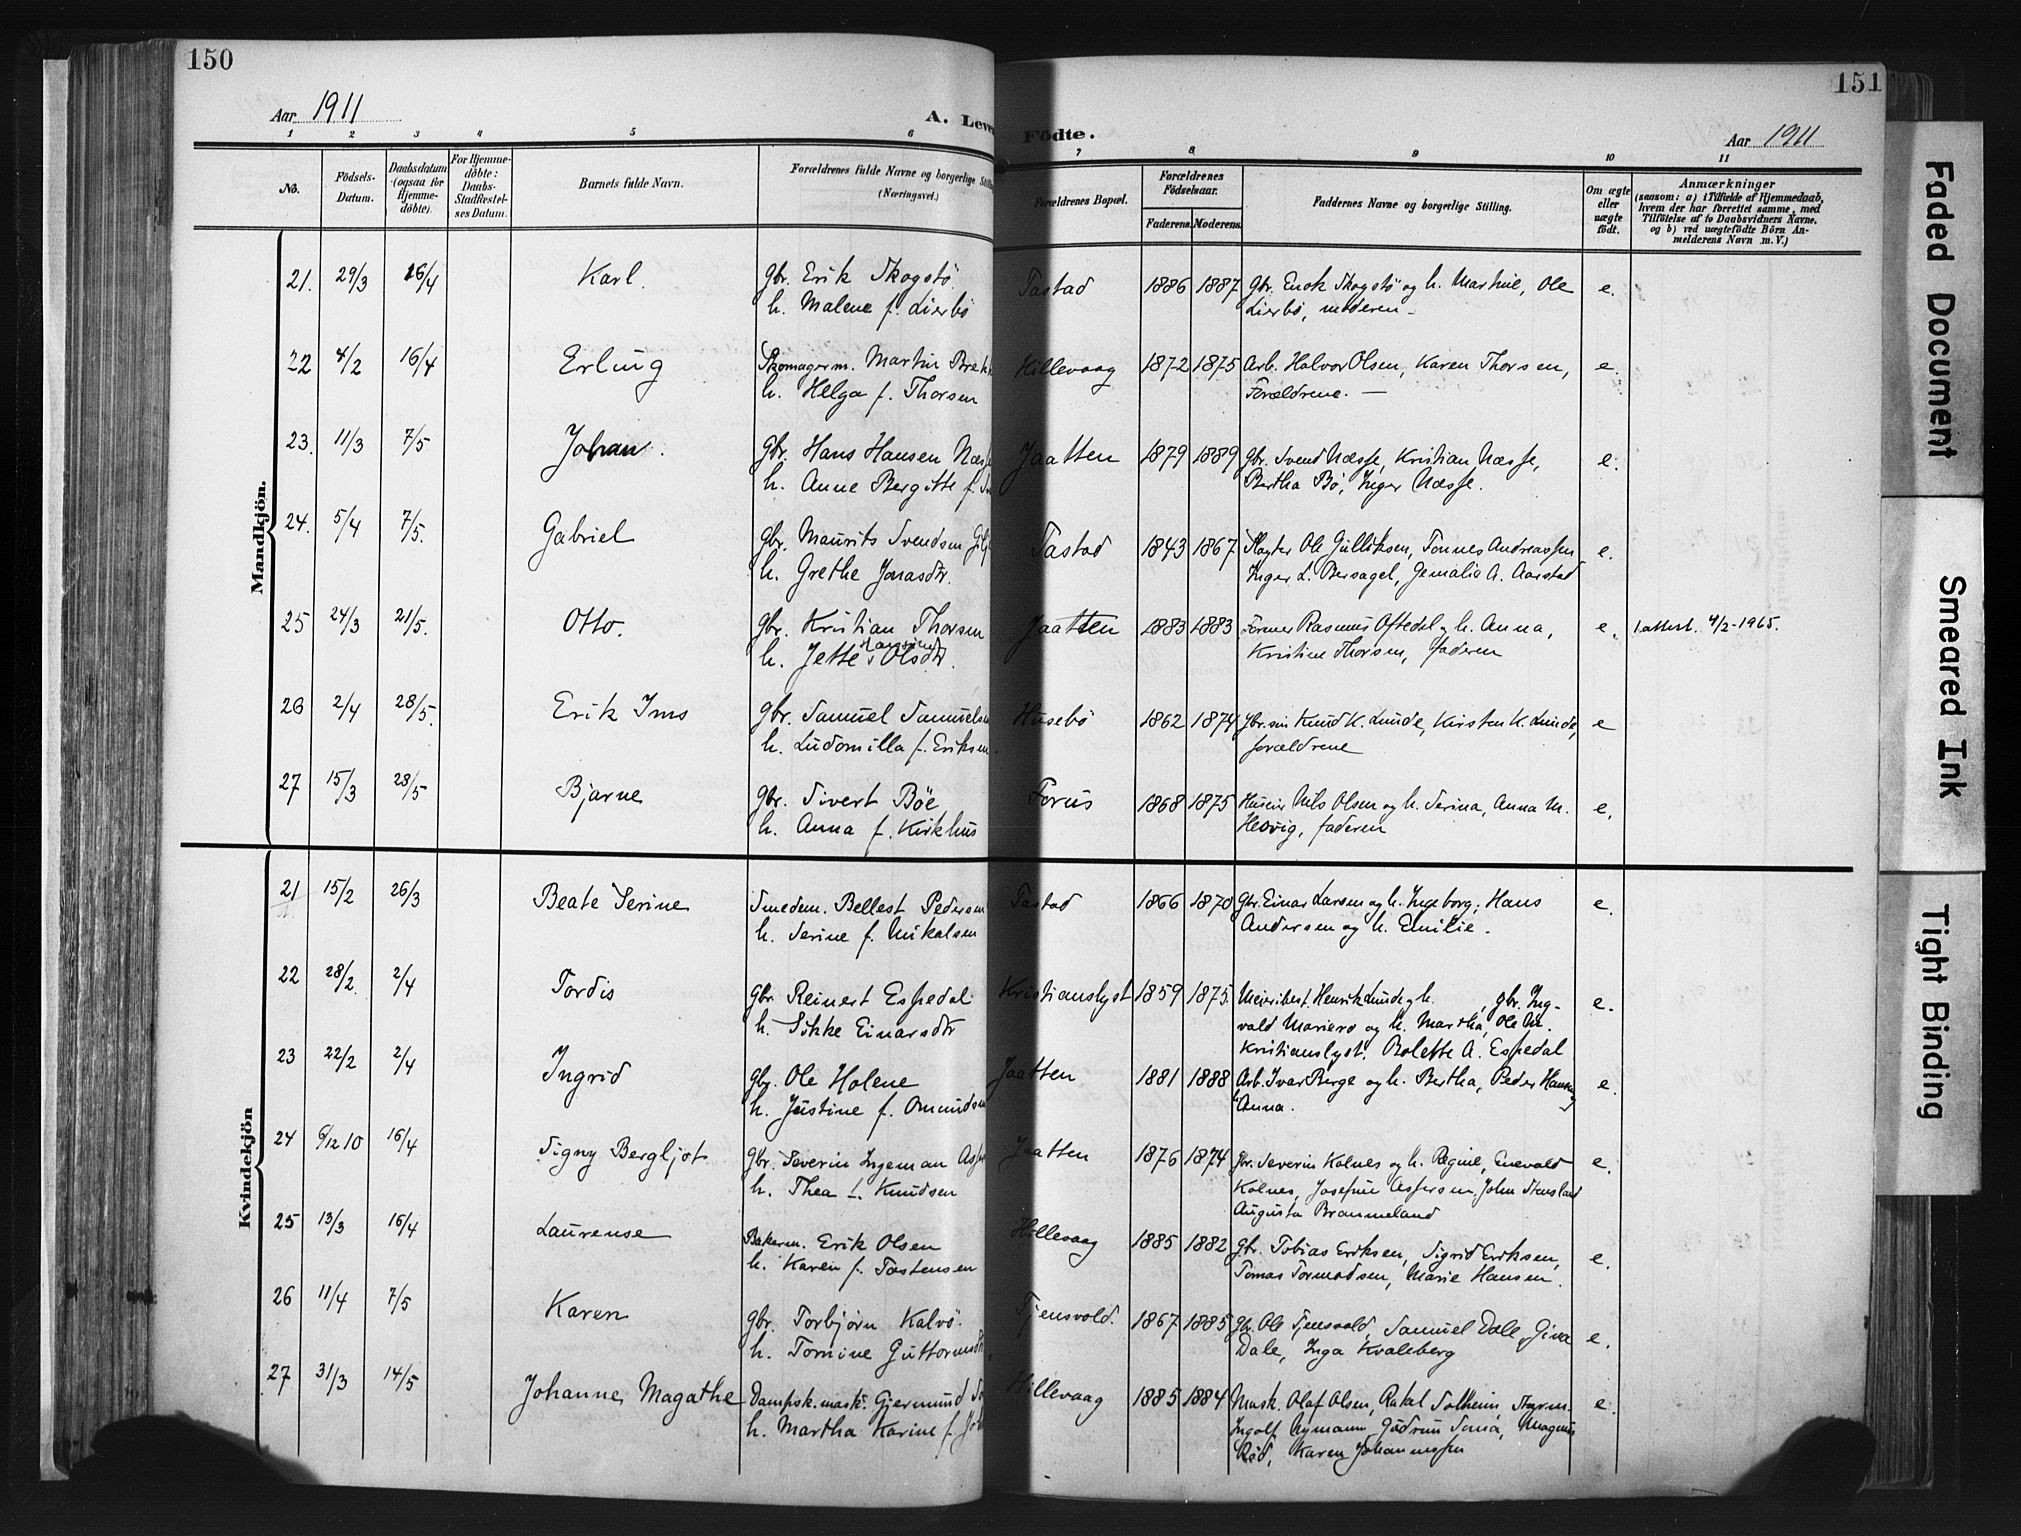 150
Aar 1911
A. Leve
1 2 3 4 5 6
No.
Fødsels-
Datum.
Daabsdatum
(ogsaa for
Hjemme-
døbte).
For Hjemme-
døbte:
Daabs-
Stadfæstel-
ses Datum.
Barnets fulde Navn.
Forældrenes fulde Navne og borgerlige Stilling
(Næringsvei.)
Mandkjön.
21. 29/3 16/4 Karl. gbr. Erik Skogstø.
h. Malene f. Lierbø
22 4/2 16/4 Erling Skomagerm. Martin Brekk
h. Helga f. Thorsen
23. 11/3 7/5 Johan. gbr. Hans Hansen Næs
h. Anne Bergitte f.
24. 5/4 7/5. Gabriel gbr. Maurits Svendsen
h. Grethe Jonasdtr.
25 24/3 21/5. Otto. gbr. Kristian Thorsen
h. Jette Olsdtr.
26 2/4 28/5. Erik Ims gbr. Samuel Samuelsen
h. Ludomilla f. Eriksen
27 15/3 28/5 Bjarne gbr. Sivert Bøe
h. Anna f. Kirkhus
Kvindekjön
21 15/2 26/3 Beate Serine Smedem. Bellest Pedersen
h. Serine f. Mikalsen
22 28/2 2/4 Tordis gbr Reinert Espedal
h. Sikke Einarsdtr
23 22/2 2/4 Ingrid gbr. Ole Holene
h. Justine f. Omundsen
24 6/12 10 16/4 Signy Bergljot gbr. Severin Ingeman
h. Thea f. Knudsen
25 13/3 16/4 Laurense Bakerm. Erik Olsen
h. Karen f. Tostensen
26 11/4 7/5 Karen gbr. Torbjørn Kalvø.
h. Tomine Guttormsdtr
27 31/3 14/5 Johanne Magathe Dampsk.mask. Gjermund
h. Martha Karine f.
151
Födte.
Aar 1911
7 8 9 10 11
Forældrenes Bopæl.
Forældrenes
Fødselsaar.
Faderens. Moderens.
Faddernes Navne og borgerlige Stilling.
Om ægte
eller
uægte
født.
Anmærkninger
(saasom: a) i Tilfælde af Hjemmedaab,
hvem der har forrettet samme, med
Tilføtelse af to Daabsvidners Navne,
og b) ved uægtefødte Börn An-
melderens Navn m. V.)
Tastad 1886 1887 gbr. Enok Skogstø og h. Martine, Ole e.
Lierbø, moderen -
Hillevaag 1872 1875 Arb. Halvor Olsen, Karen Thorsen, e.
Forældrene. -
Jaatten 1879 1889 gbr. Svend Næsse, Kristian Næsse, e.
Bertha Bø, Inger Næsse.
Tastad 1843 1867 Slagter Ole Gulliksen, Tonnes Andreassen e.
Inger L. Bersagel, Jemalie A. Aarstad
Jaatten 1883 1883 Former Rasmus Oftedal og h. Anna, e. 1.attest. 4/2-1965.
Kristine Thorsen, faderen
Husebø 1862 1874 gbr.søn Knud K. Lunde, Kirsten K. Lunde, e
forældrene
Forus 1868 1875 Huseier Nils Olsen og h. Serina, Anna M. e.
Hedvig, faderen
Tastad 1866 1870 gbr. Einar Larsen og h. Ingeborg, Hans e.
Andersen og h. Emilie.
Kristianslyst 1859 1875. Meieribest. Henrik Lunde og h. , gbr. Ing- e.
vald Mariero og h. Martha, Ole M.
Kristianslyst. Bolette A. Espedal
Jaatten 1881 1888 Arb. Ivar Berge og h. Bertha, Peder Hansen e
Anna.
Jaatten 1876 1874 gbr. Severin Kolnes og h. Regine, Enevald e.
Kolnes, Josefine Aspersen, John Stensland
Augusta Brommeland
Hillevaag 1885 1882 gbr. Tobias Eriksen, Sigrid Eriksen, e.
Tomas Tormodsen, Marie Hansen.
Tjensvold. 1867 1885 gbr. Ole Tjensvold, Samuel Dale, Gina e.
Dale, Inga Kvaleberg
Hillevaag 1885 1884 Mask. Olaf Olsen, Rakel Solheim, Styrm. e.
Ingolf Nymann, Gudrun Sømø, Magnus
Rød, Karen Johannessen
Faded Document
Smeared Ink
Tight Binding